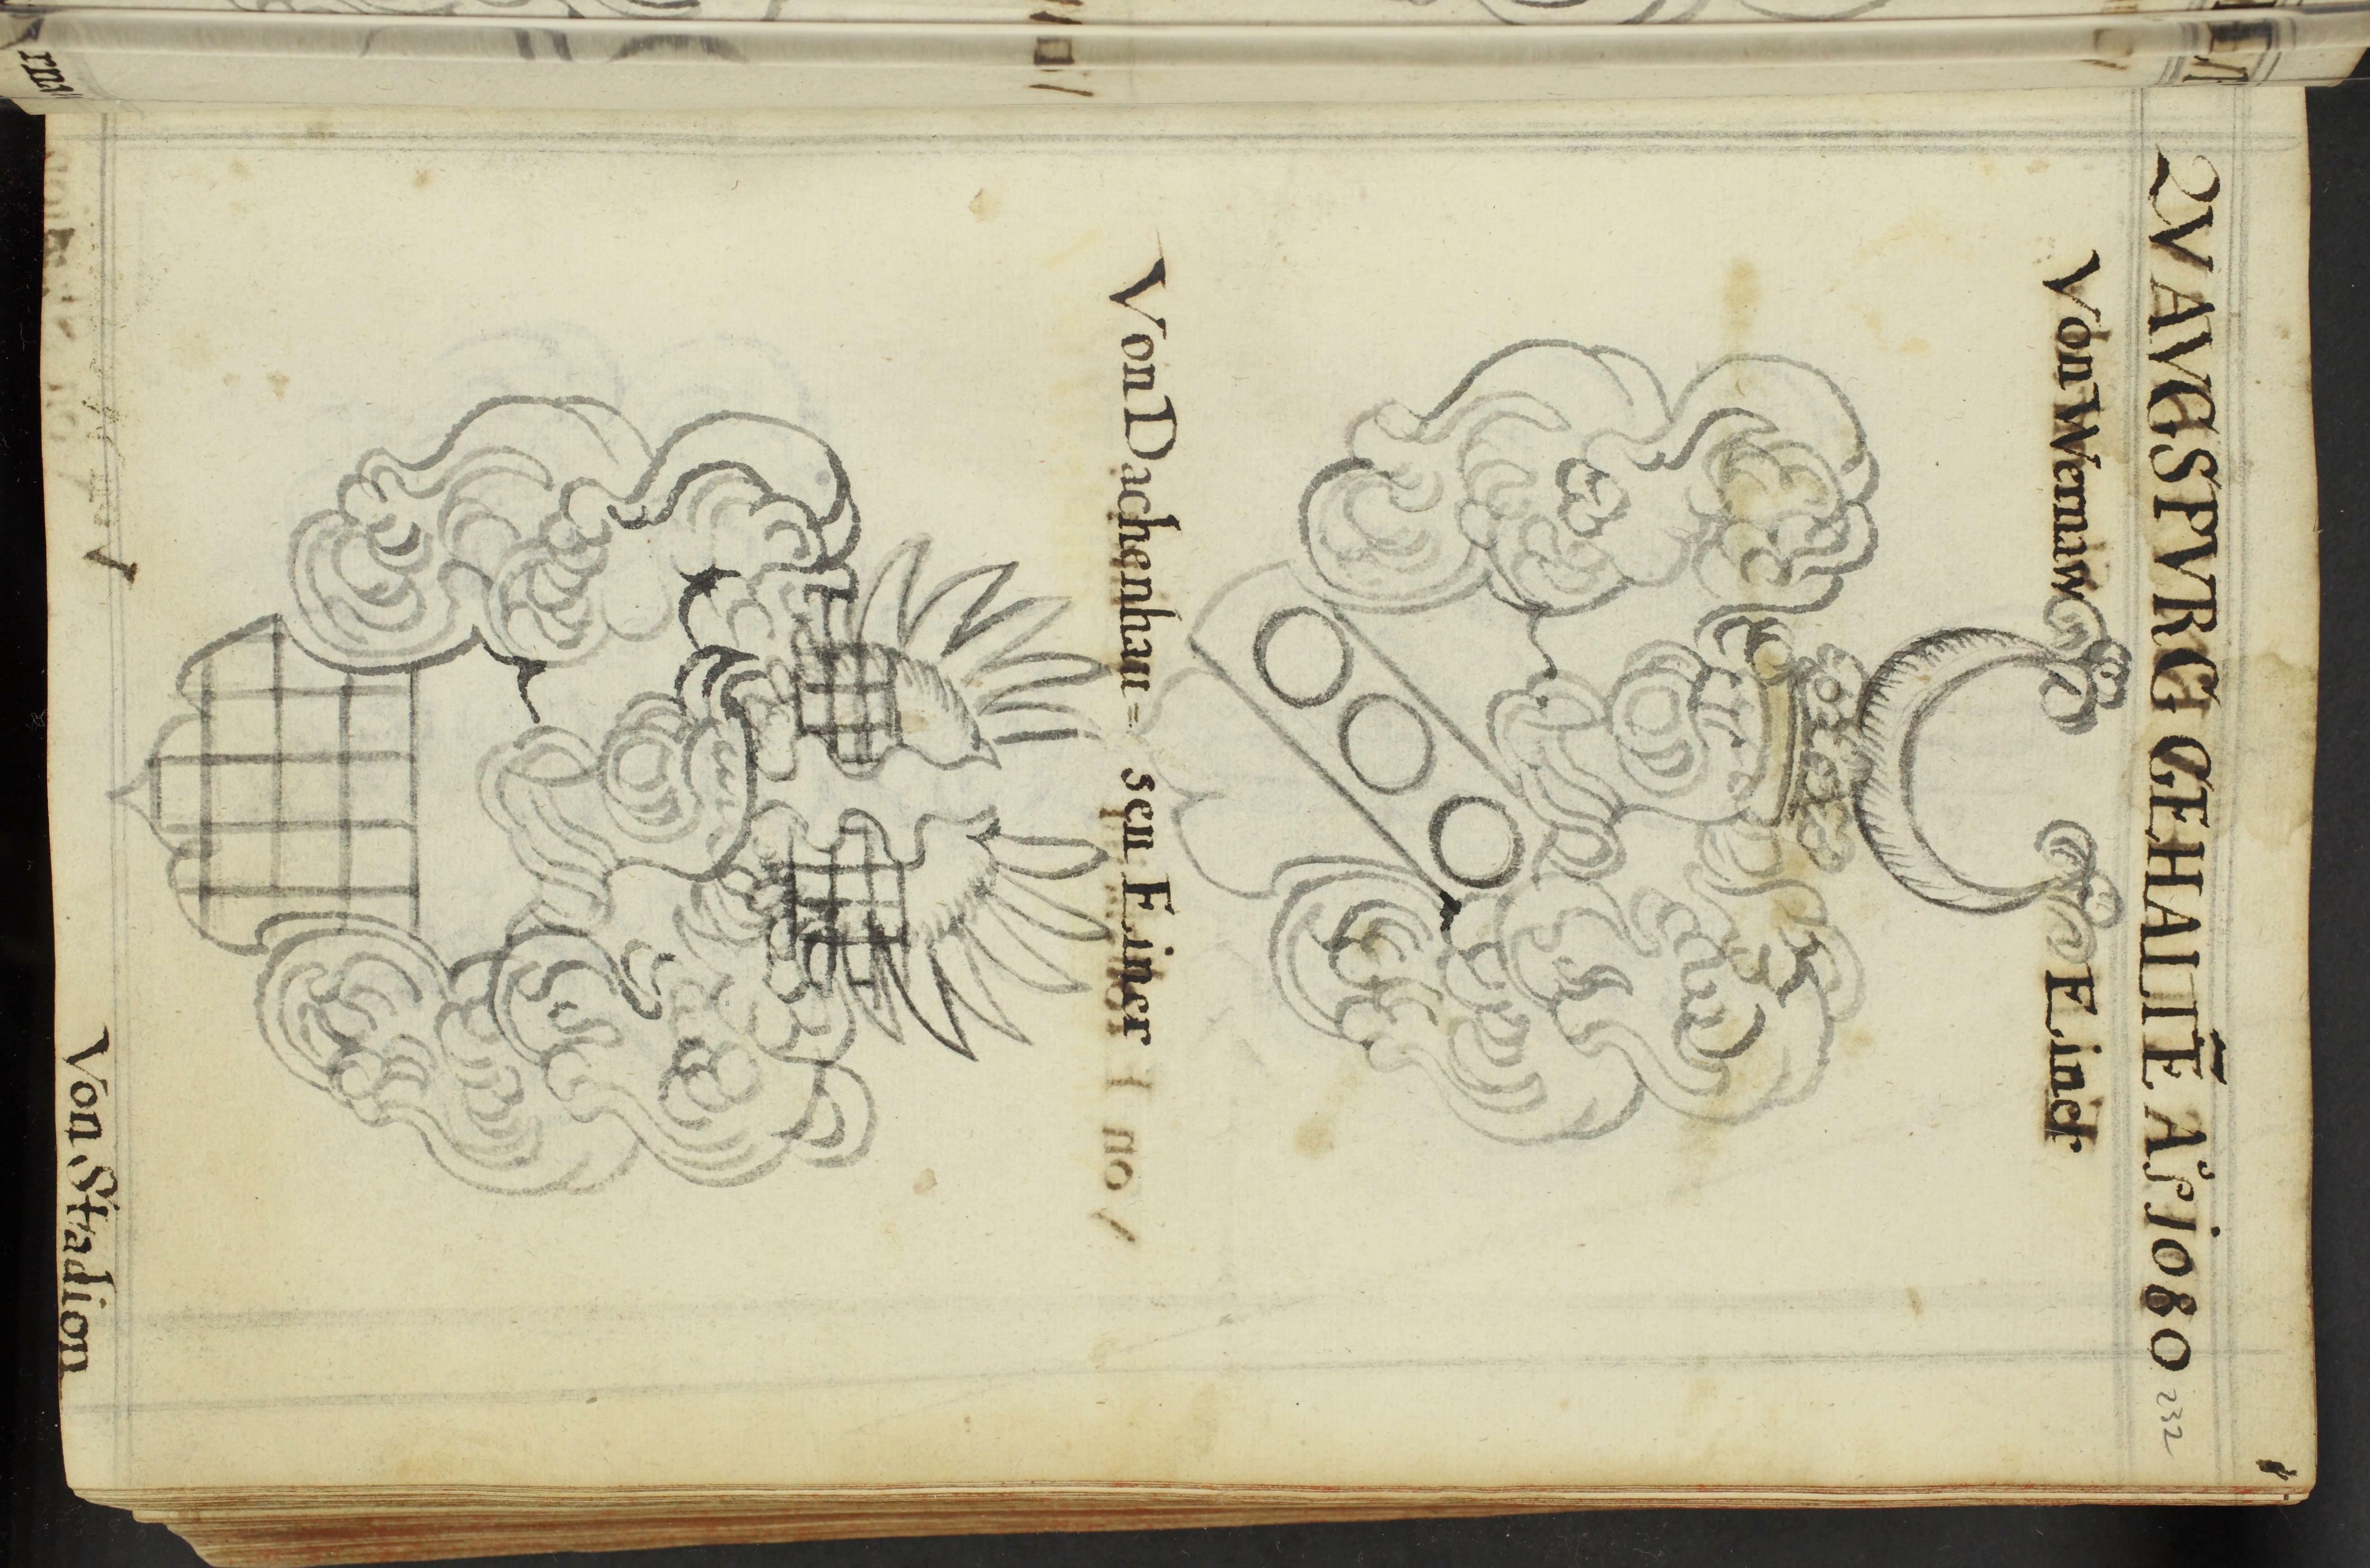 ZV AVGSPVRG GEHALTẼ Aº 1080
232
Von Wernaw Einer
Von Dachenhau= sen Einer
Von Stadion